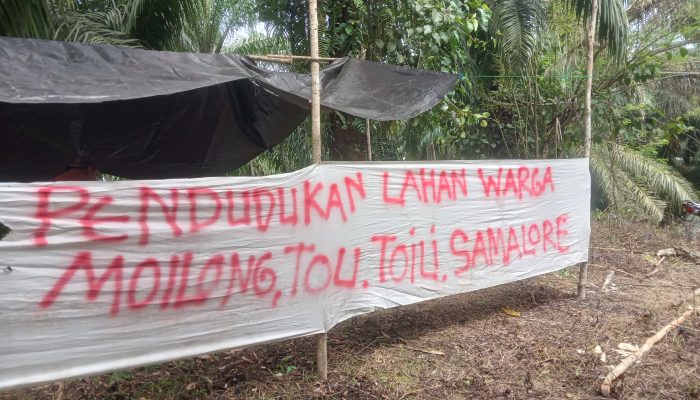 PENDUDUKAN LAHAN WARGA
MOILONG, TOU, TOILI, SAMALORE